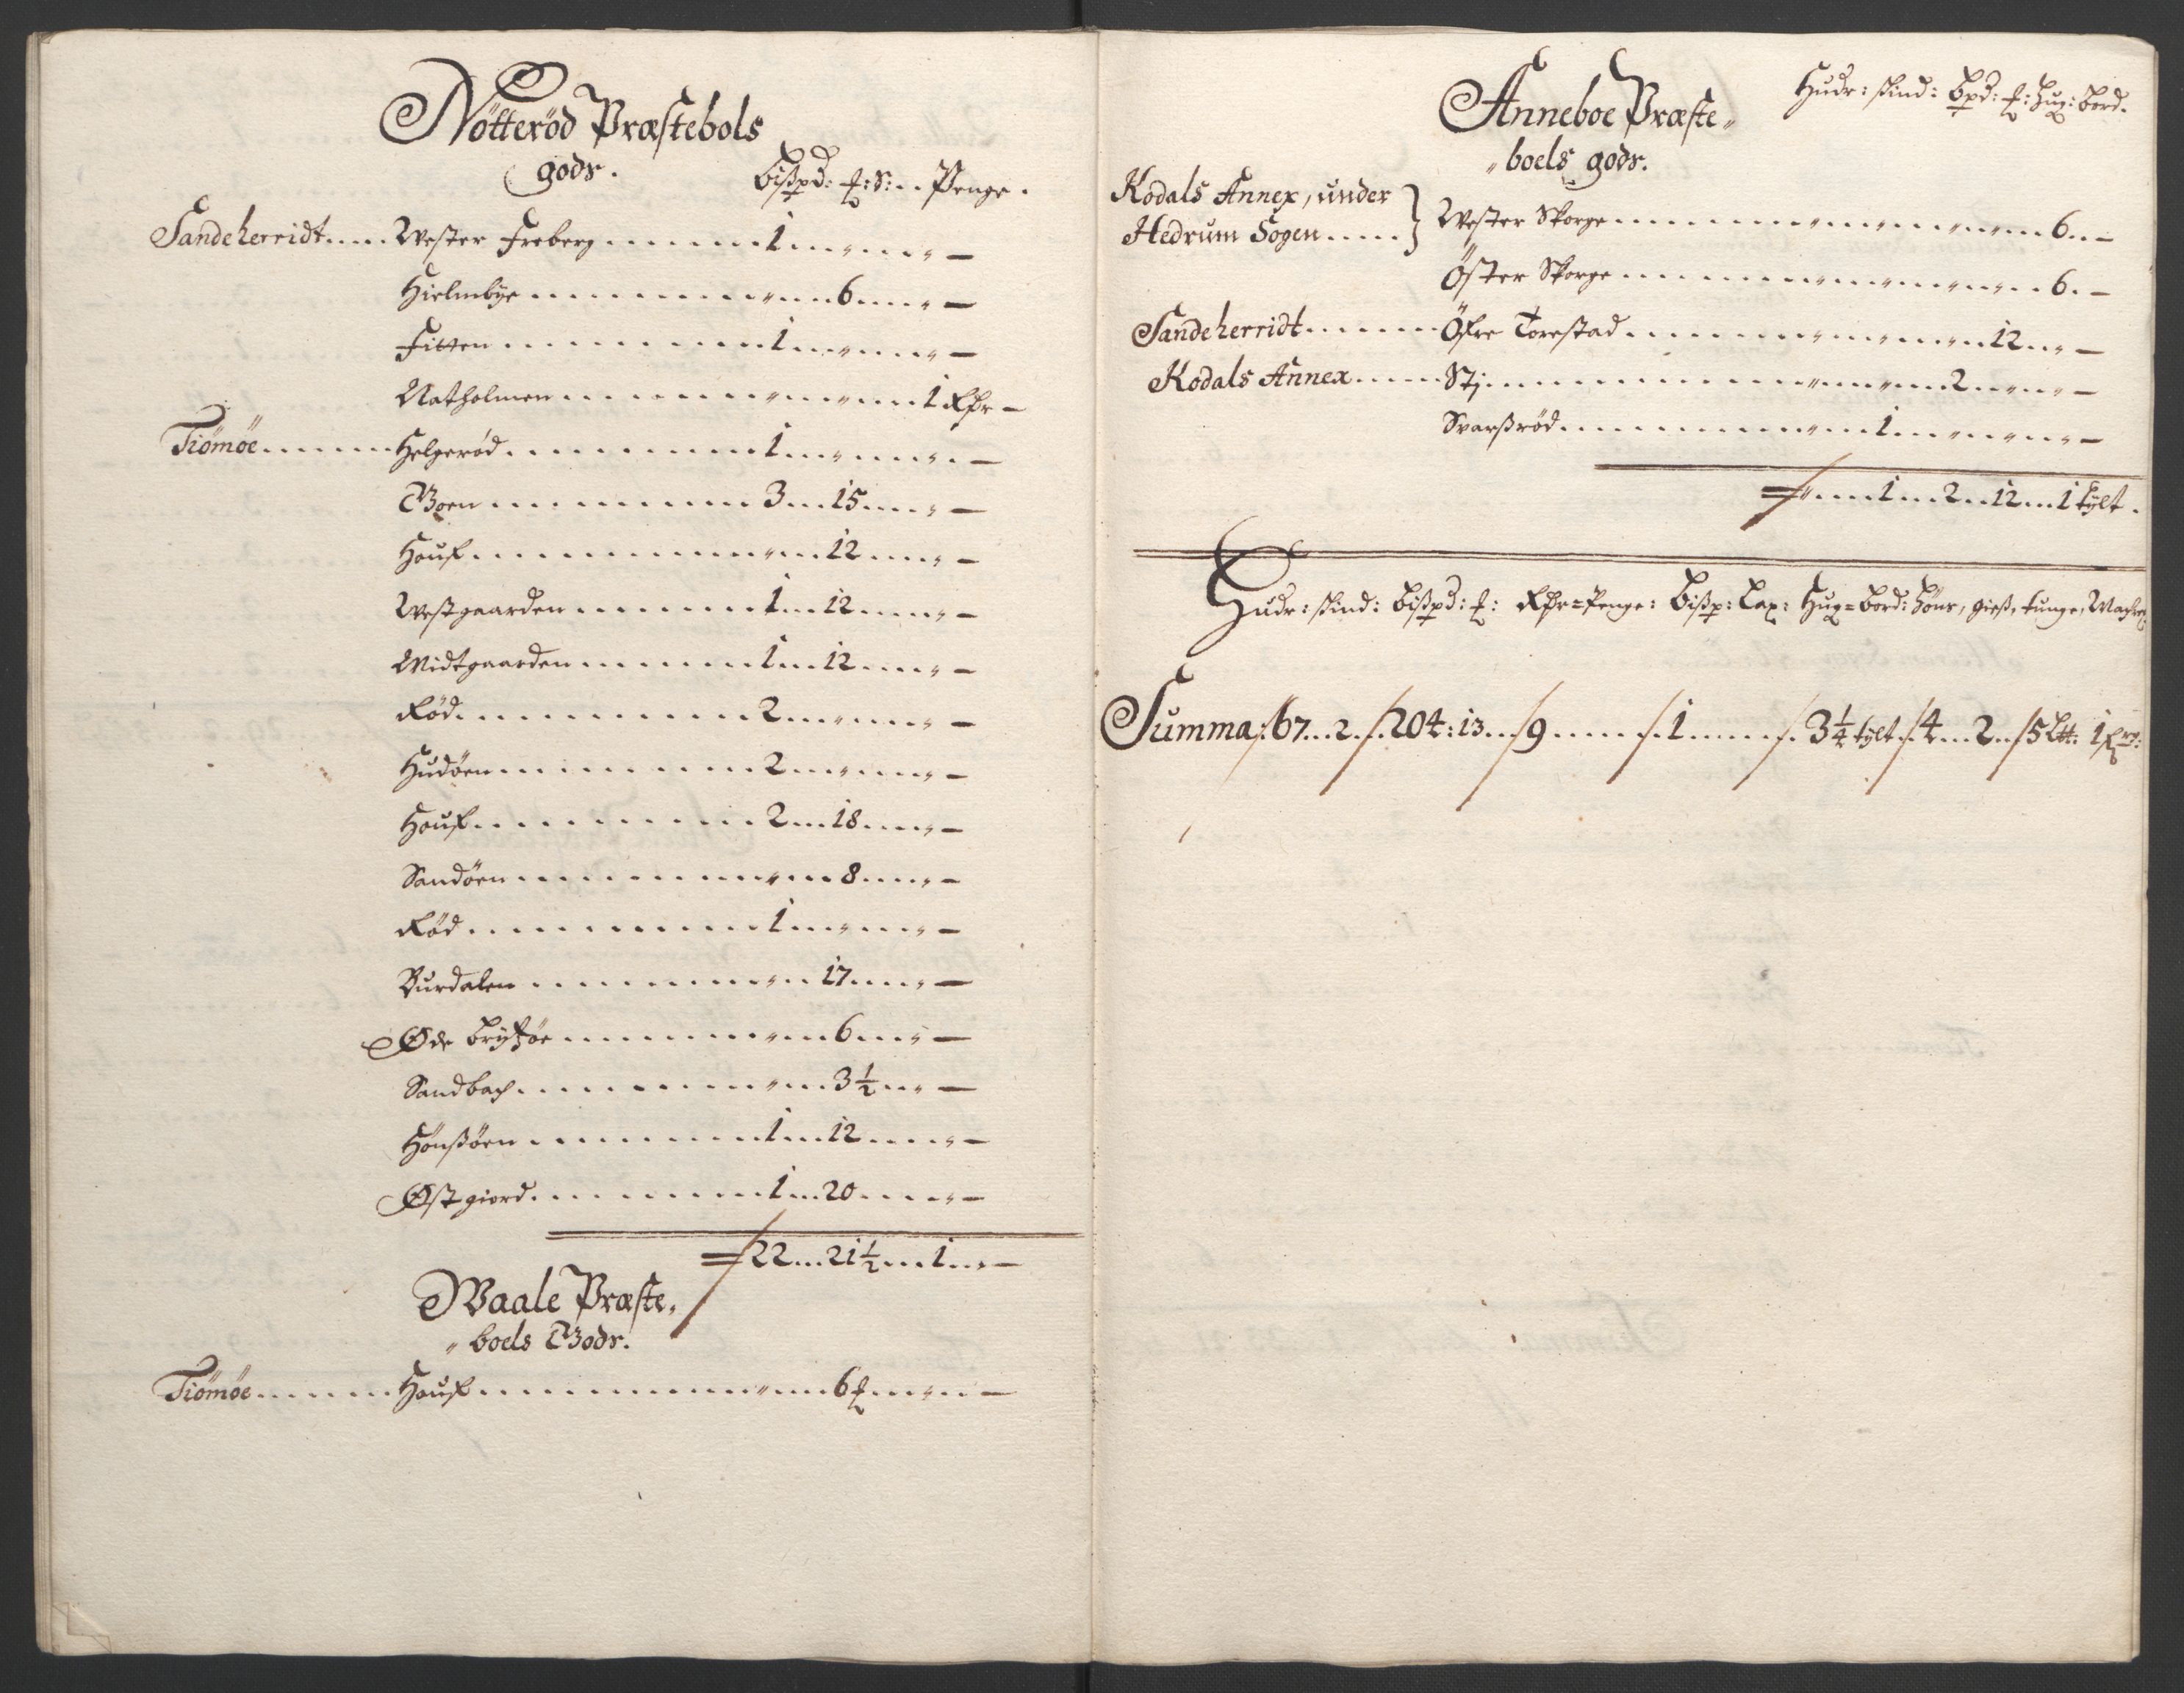 Nötterød Præstebols
gods.
bißpd: ℔: S: .. Penge.
Sandeherridt..... Wester Freberg ........ 1 ..... " —
Hielmbye ........ " .. 6 .... " —
Fitten ........ 1 ..... " —
Natholmen ........ " .... " .. 1 Rdr —
Tiömöe ...... Helgerød ........ 1 ..... " —
Boen ........ 3 ... 15 .... " —
Houf ........ " .. 12 .... " —
Westgaarden ........ 1 .. 12 .... " —
Midtgaarden ........ 1 .. 12 .... " —
Rød ........ 2 ..... " —
Hudøen ........ 2 ..... " —
Houf ........ 2 ... 18 .... " —
Sandøen ........ " .. 8 .... " —
Rød ........ 1 ..... " —
Burdalen ........ " .. 17 .... " —
Øde bryttøe ........ " .. 6 .... " —
Sandbach ........ " .. 3½ ... " —
Hönßöen ........ 1 .. 12 .... " —
Østgiord ........ 1 .. 20 .... " —
= 22 ... 21½ ... 1 .. " —
Waale Præste„
„boels Gods.
Tiömöe ...... Houf ........ " .. 6 ℔ .... " —
Anneboe Præste„
„boels gods.
Hudr: skind: bpd: ℔: hug: bord.
Kodals Annex, under
Hedrum Sogen .....
Wester Skorge ........ " .. 6 .. —
Öster Skorge ........ " .. 6 .. —
Sandeherridt ...... Öfre Torestad ........ " .. 12 .. " —
Kodals Annex ..... Sti ........ " .. 2 .... " —
Svarßrød ........ " .. 1 .... " —
= " .... 1 ... 2 .. 12 ... 1 tylt.
Hudr: skind: bißpd: ℔: Rdr=Penge: bißp: Lax: Hug=bord: höns, gieß, tunge,
Summa: 67 ... 2 . 204: 13 .. 9 ..... 1 ..... 3¼ tylt 4 ... 2 .. 5 1